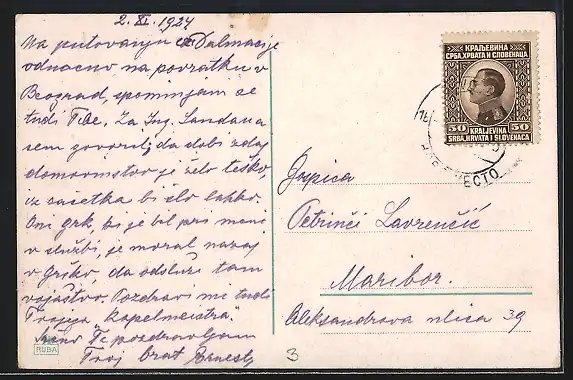 2. XI. 1924
Na putovanju iz Dalmacije
odnosno na povratku v
Beograd, spominjam se
tudi Tebe. Za Ing. Sandana
sem govoril; da dobi zdaj
domovinstvo je zelo teško
iz začetka bi šlo lahko.
Oni grk, ki je bil pri meni
v službi, je moral nazaj
v Grško, da odsluži tam
vojaštvo. Pozdravi mi tudi
Tvojega "Kapelmeistra".
Te pozdravljam
Tvoj brat Ernest
RUBA
3
КРАЉЕВИНА
СРБА, ХРВАТА И СЛОВЕНАЦА
50 KRALJEVINA 50
SRBA, HRVATA I SLOVENACA
МЕСТО
Gospica
Petrinči Lavrenčić
Maribor.
Aleksandrova ulica 39